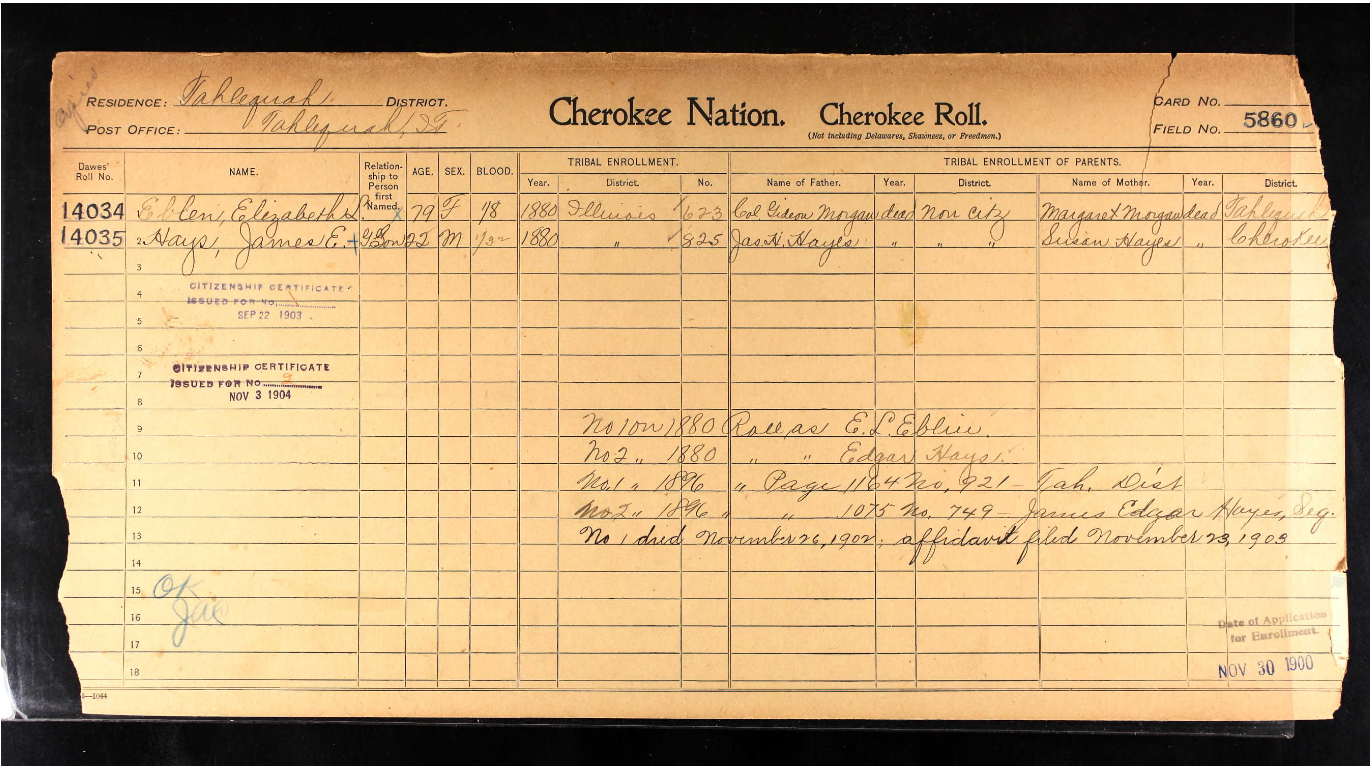 RESIDENCE: Tahlequah DISTRICT.
POST OFFICE: Tahlequah, I.T.
Cherokee Nation. Cherokee Roll.
(Not including Delawares, Shawnees, or Freedmen.)
CARD NO.
FIELD NO. 5860
Dawes' Roll No. NAME. Relationship to Person first Named. AGE. SEX. BLOOD. TRIBAL ENROLLMENT. TRIBAL ENROLLMENT OF PARENTS.
Year. District. No. Name of Father. Year. District. Name of Mother. Year. District.
14034 Eblen, Elizabeth L. 79 F 1/8 1880 Illinois 623 Col Gideon Morgan dead Non city Margaret Morgan dead Tahlequah
14035 2 Hays, James E. G Son 22 M 1/32 1880 " 825 Jas H. Hayes " " " Susan Hayes " Cherokee
3
4 CITIZENSHIP CERTIFICATE
ISSUED FOR No. 1
SEP 22 1903
5
6
7 CITIZENSHIP CERTIFICATE
ISSUED FOR NO. 2
NOV 3 1904
8
9 No 1 on 1880 Roll as E. L. Eblin.
10 No 2 " 1880 " " Edgar Hays.
11 No. 1 " 1896 " Page 1164 No, 921 - Tah. Dist
12 No 2 " 1896 " " 1075 No, 749 - James Edgar Hayes, Seq.
13 No 1 died November 26, 1902; affidavit filed November 23, 1903
14
15 OK
16
17
18
Date of Application
for Enrollment.
NOV 30 1900